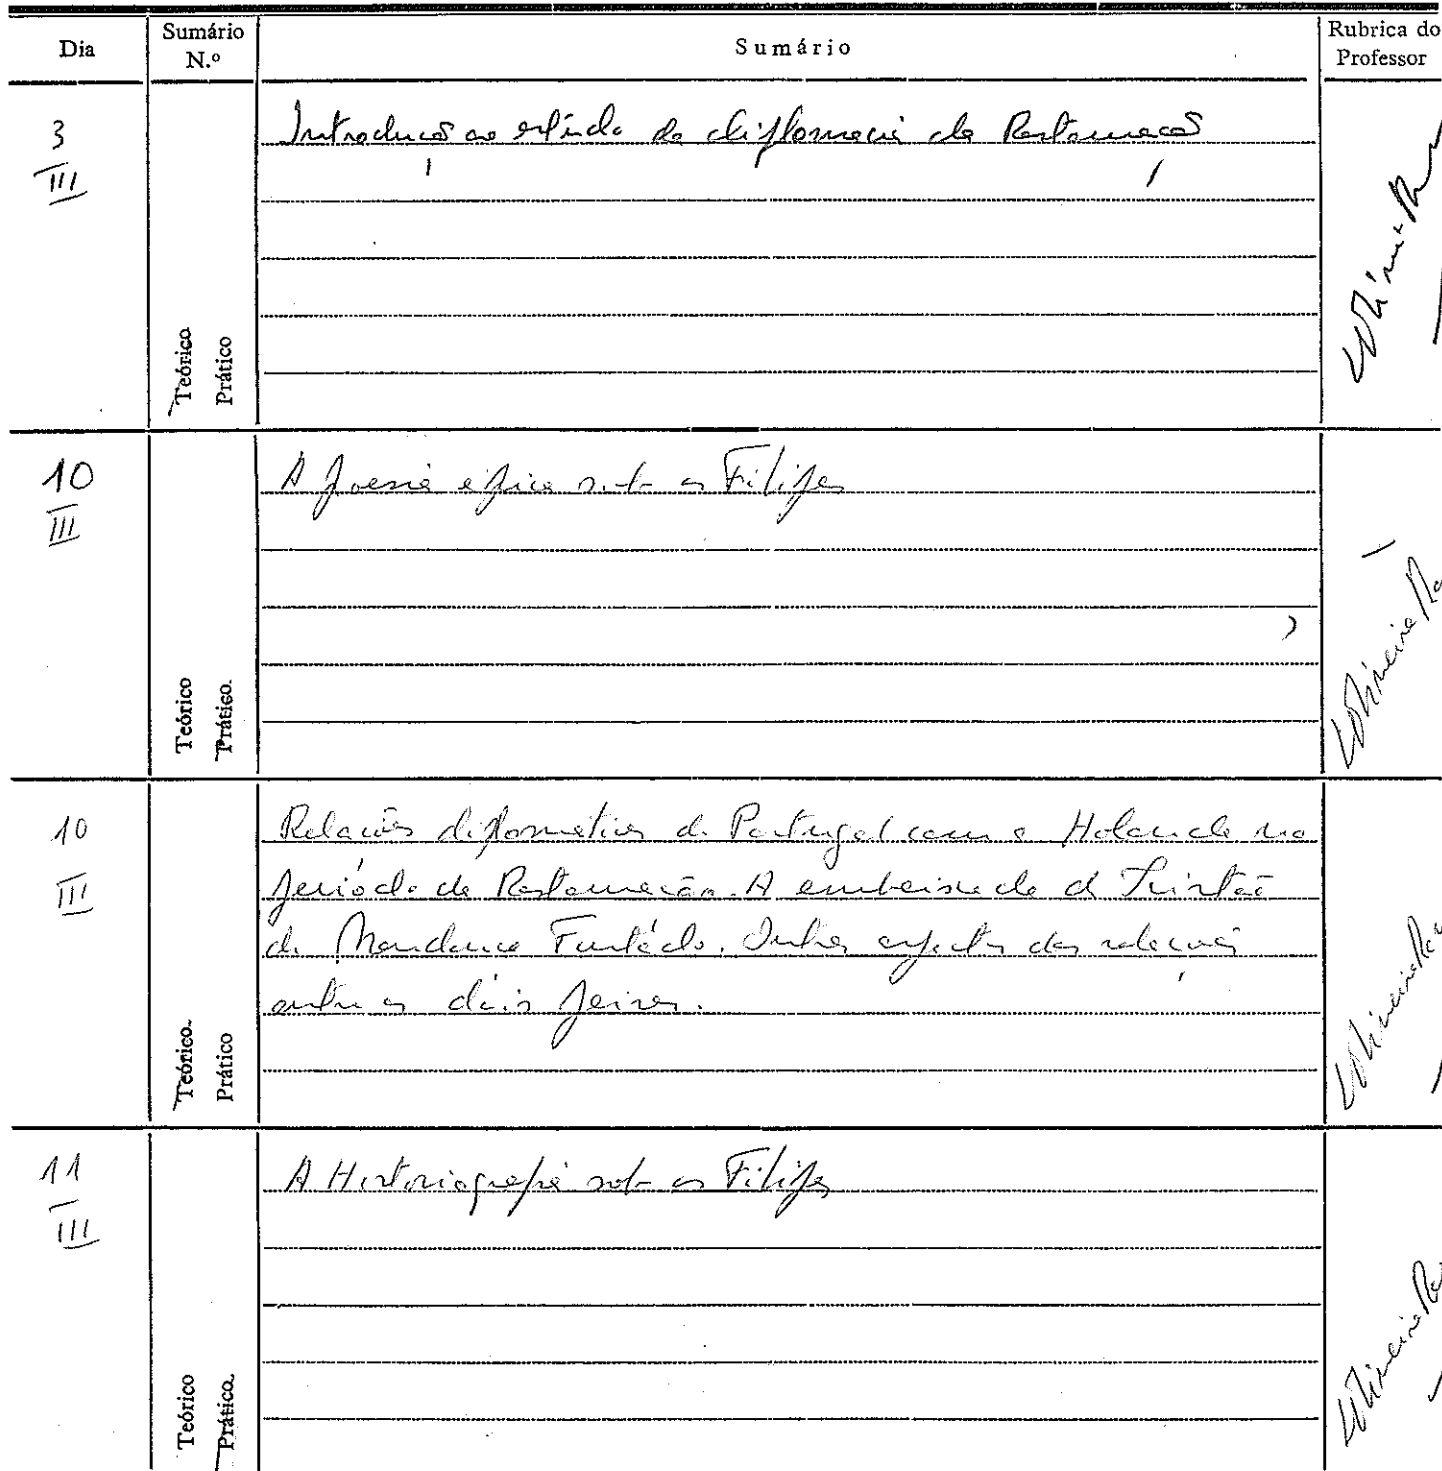 Dia
Sumário N.º
Sumário
Rubrica do Professor
3
III
Teórico
Prático
Introdução ao estudo da diplomacia da Restauração
10
III
Teórico
Prático
A poesia épica sob os Filipes
10
III
Teórico
Prático
Relações diplomáticas de Portugal com a Holanda no
período da Restauração. A embaixada de Tristão
de Mendonça Furtado. Outros aspectos das relações
entre os dois países.
11
III
Teórico
Prático
A Historiografia sob os Filipes